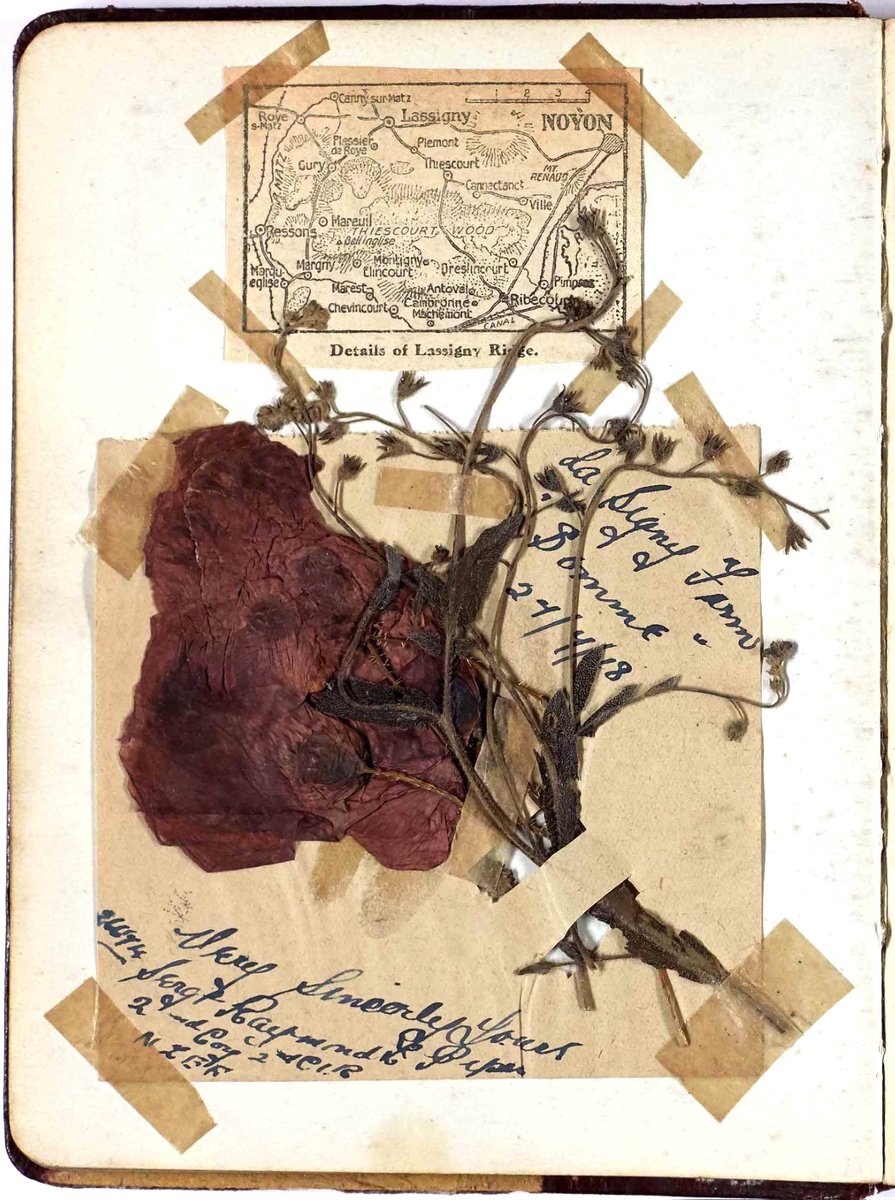 1 2 3 4
Canny-sur-Matz
Roye
s-Matz
Lassigny
NOYON
Plessier
de Roye
Plemont
Gury
Thiescourt
MT.
RENAUD
MATZ
Cannectanct
Ville
Mareuil
THIESCOURT WOOD
Ressons
Bellinglise
Margny
Montigny
Elincourt
Dreslincourt
Margu-
eglise
Marest
Antoval
Pimprez
Cambronne
Ribecourt
Chevincourt
Machemont
CANAL
Details of Lassigny Ridge.
La Signy Farm
Somme
Very Sincerley Yours
Sergt Raymond
2nd Coy 2nd C.I.R
N.Z.E.F.